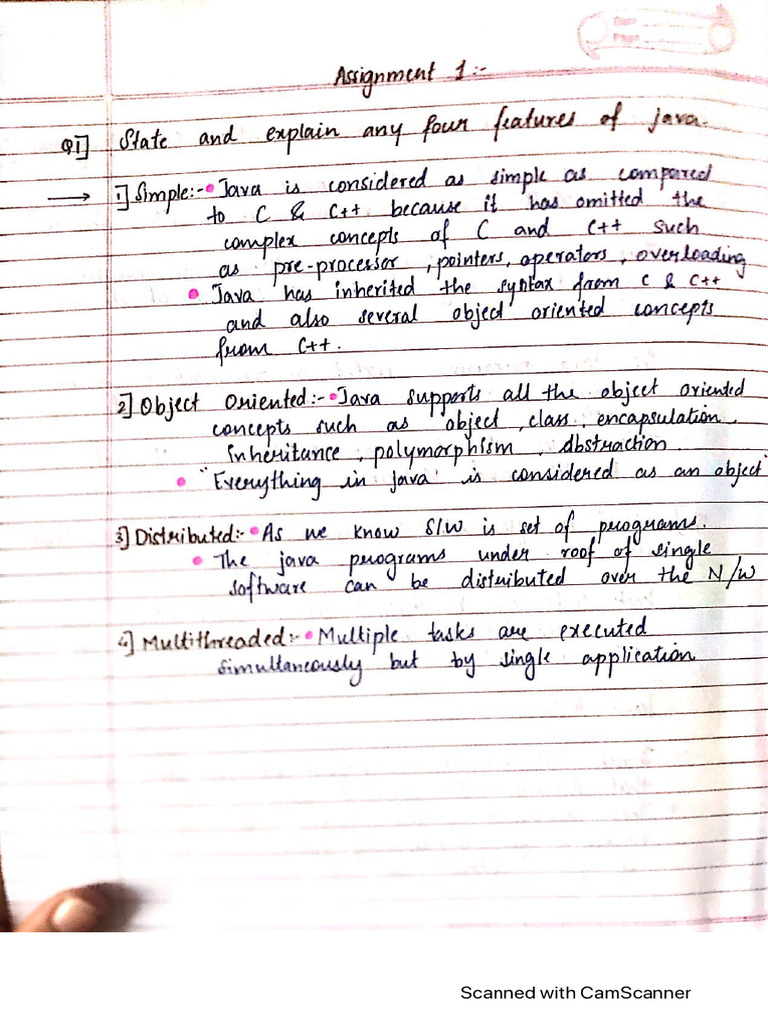 Assignment 1:-
Q1] State and explain any four features of java.
→ 1] Simple:- • Java is considered as simple as compared
to C & C++ because it has omitted the
complex concepts of C and C++ such
as pre-processor, pointers, operators, overloading
• Java has inherited the syntax from C & C++
and also several object oriented concepts
from C++.
2] Object Oriented:- • Java supports all the object oriented
concepts such as object, class, encapsulation,
inheritance, polymorphism, Abstraction.
• "Everything in java" is considered as an object"
3] Distributed:- • As we know S/W is set of programs.
• The java programs under roof of single
software can be distributed over the N/W
4] Multithreaded:- • Multiple tasks are executed
simultaneously but by single application
Scanned with CamScanner